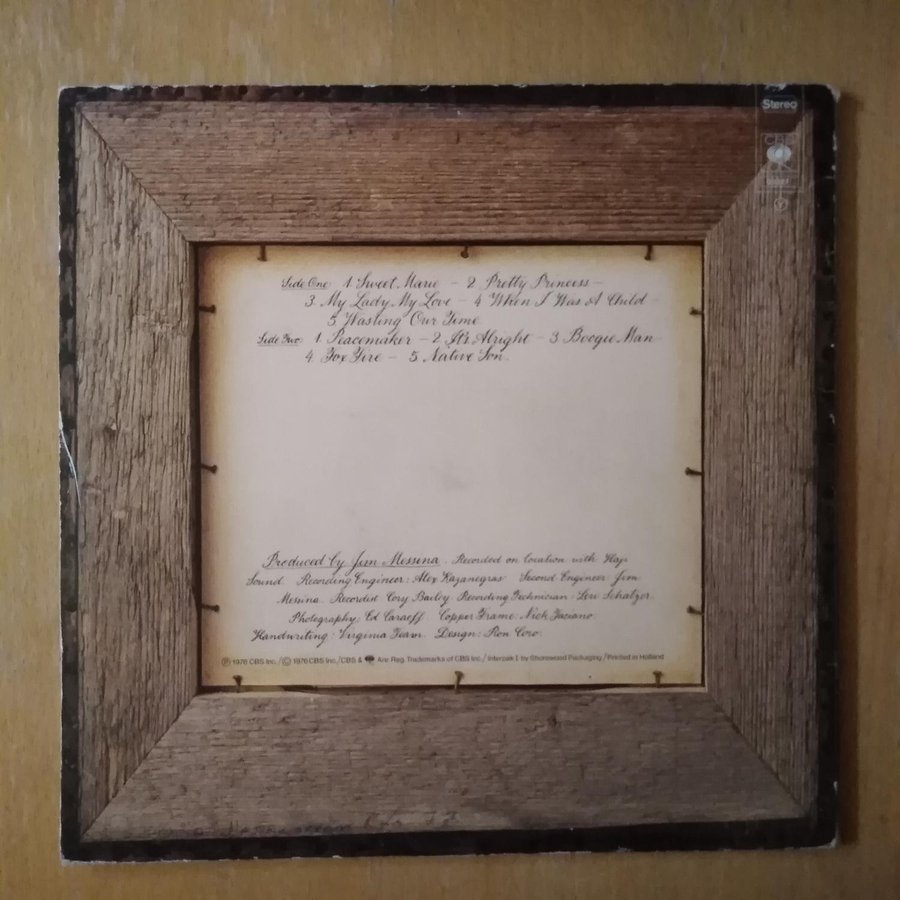 Stereo
CBS
Side One 1 Sweet Marie - 2 Pretty Princess -
3 My Lady, My Love - 4 When I Was A Child -
5 Wasting Our Time
Side Two 1 Peacemaker - 2 It's Alright - 3 Boogie Man
4 Fox Fire - 5 Native Son.
Produced by Jim Messina. Recorded on location with Haji
Sound Recording Engineer: Alex Kazanegras Second Engineer Jim
Messina. Recorded Cory Bailey Recording Technician: Len Schatzer.
Photography: Ed Caraeff. Copper Frame: Nick Fasciano.
Handwriting: Virginia Team. Design: Ron Coro.
Ⓟ 1976 CBS Inc./© 1976 CBS Inc./CBS & Are Reg. Trademarks of CBS Inc./Interpak I by Shorewood Packaging/Printed in Holland